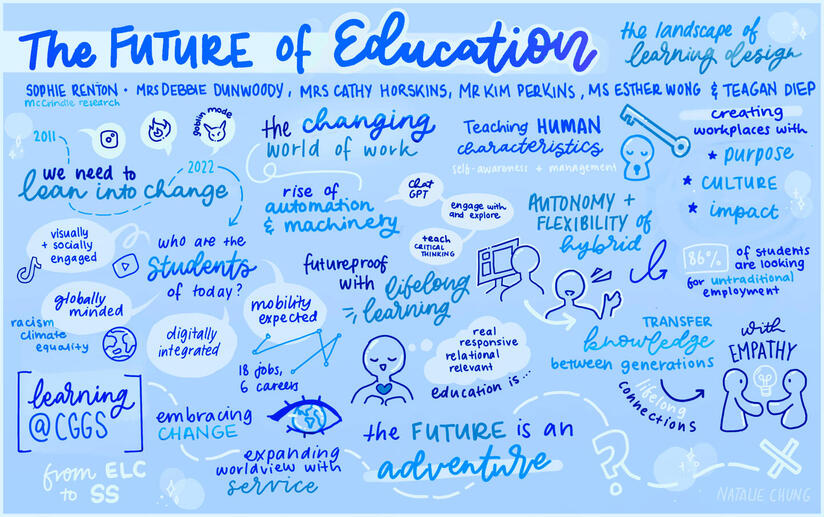 The FUTURE of Education
the landscape of
learning design
SOPHIE RENTON • MRS DEBBIE DUNWOODY, MRS CATHY HORSKINS, MR KIM PERKINS, MS ESTHER WONG & TEAGAN DIEP
McCrindle research
2011
goblin mode
we need to
lean into change
2022
the changing
world of work
Teaching HUMAN
characteristics
self-awareness + management
creating
workplaces with
* purpose
* CULTURE
* impact
rise of
automation
& machinery
chat
GPT
engage with
and explore
teach
CRITICAL
THINKING
AUTONOMY +
FLEXIBILITY of
hybrid
visually
+ socially
engaged
who are the
students
of today?
globally
minded
racism
climate
equality
digitally
integrated
mobility
expected
18 jobs,
6 careers
futureproof
with lifelong
learning
86% of students
are looking
for untraditional
employment
real
responsive
relational
relevant
education is...
TRANSFER
knowledge
between generations
with
EMPATHY
lifelong
connections
learning
@CGGS
from ELC
to SS
embracing
CHANGE
expanding
worldview with
service
the FUTURE is an
adventure
?
NATALIE CHUNG